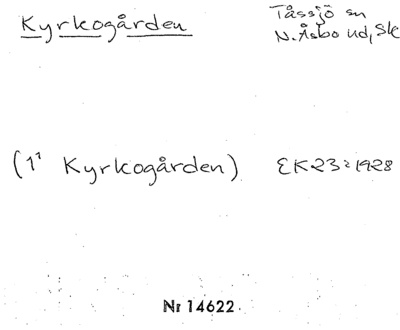 Kyrkogården
Tåssjö sn
N. Åsbo hd, Sk
(1¹ Kyrkogården) EK23:1928
Nr 14622